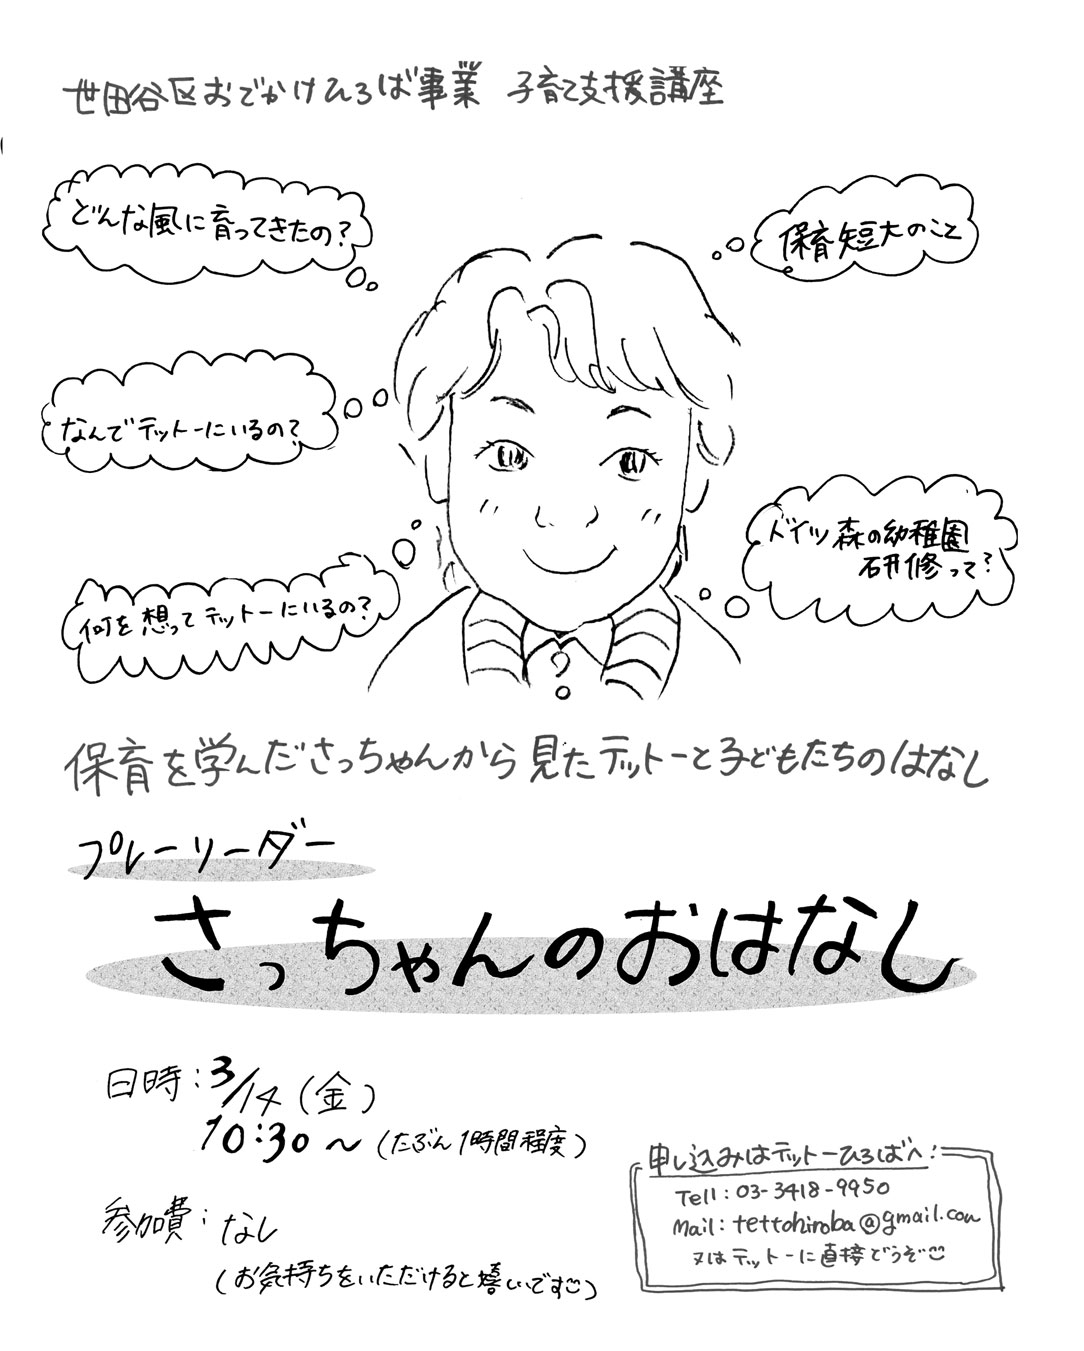 世田谷区おでかけひろば事業 子育て支援講座
どんな風に育ってきたの?
保育短大のこと
なんでテットーにいるの?
ドイツ森の幼稚園
研修って?
何を想ってテットーにいるの?
保育を学んださっちゃんから見たテットーと子どもたちのはなし
プレーリーダー
さっちゃんのおはなし
日時:3/14(金)
10:30〜(たぶん1時間程度)
参加費:なし
(お気持ちをいただけると嬉いです)
申し込みはテットーひろばへ!
Tell:03-3418-9950
Mail:tettohiroba@gmail.com
又はテットーに直接どうぞ